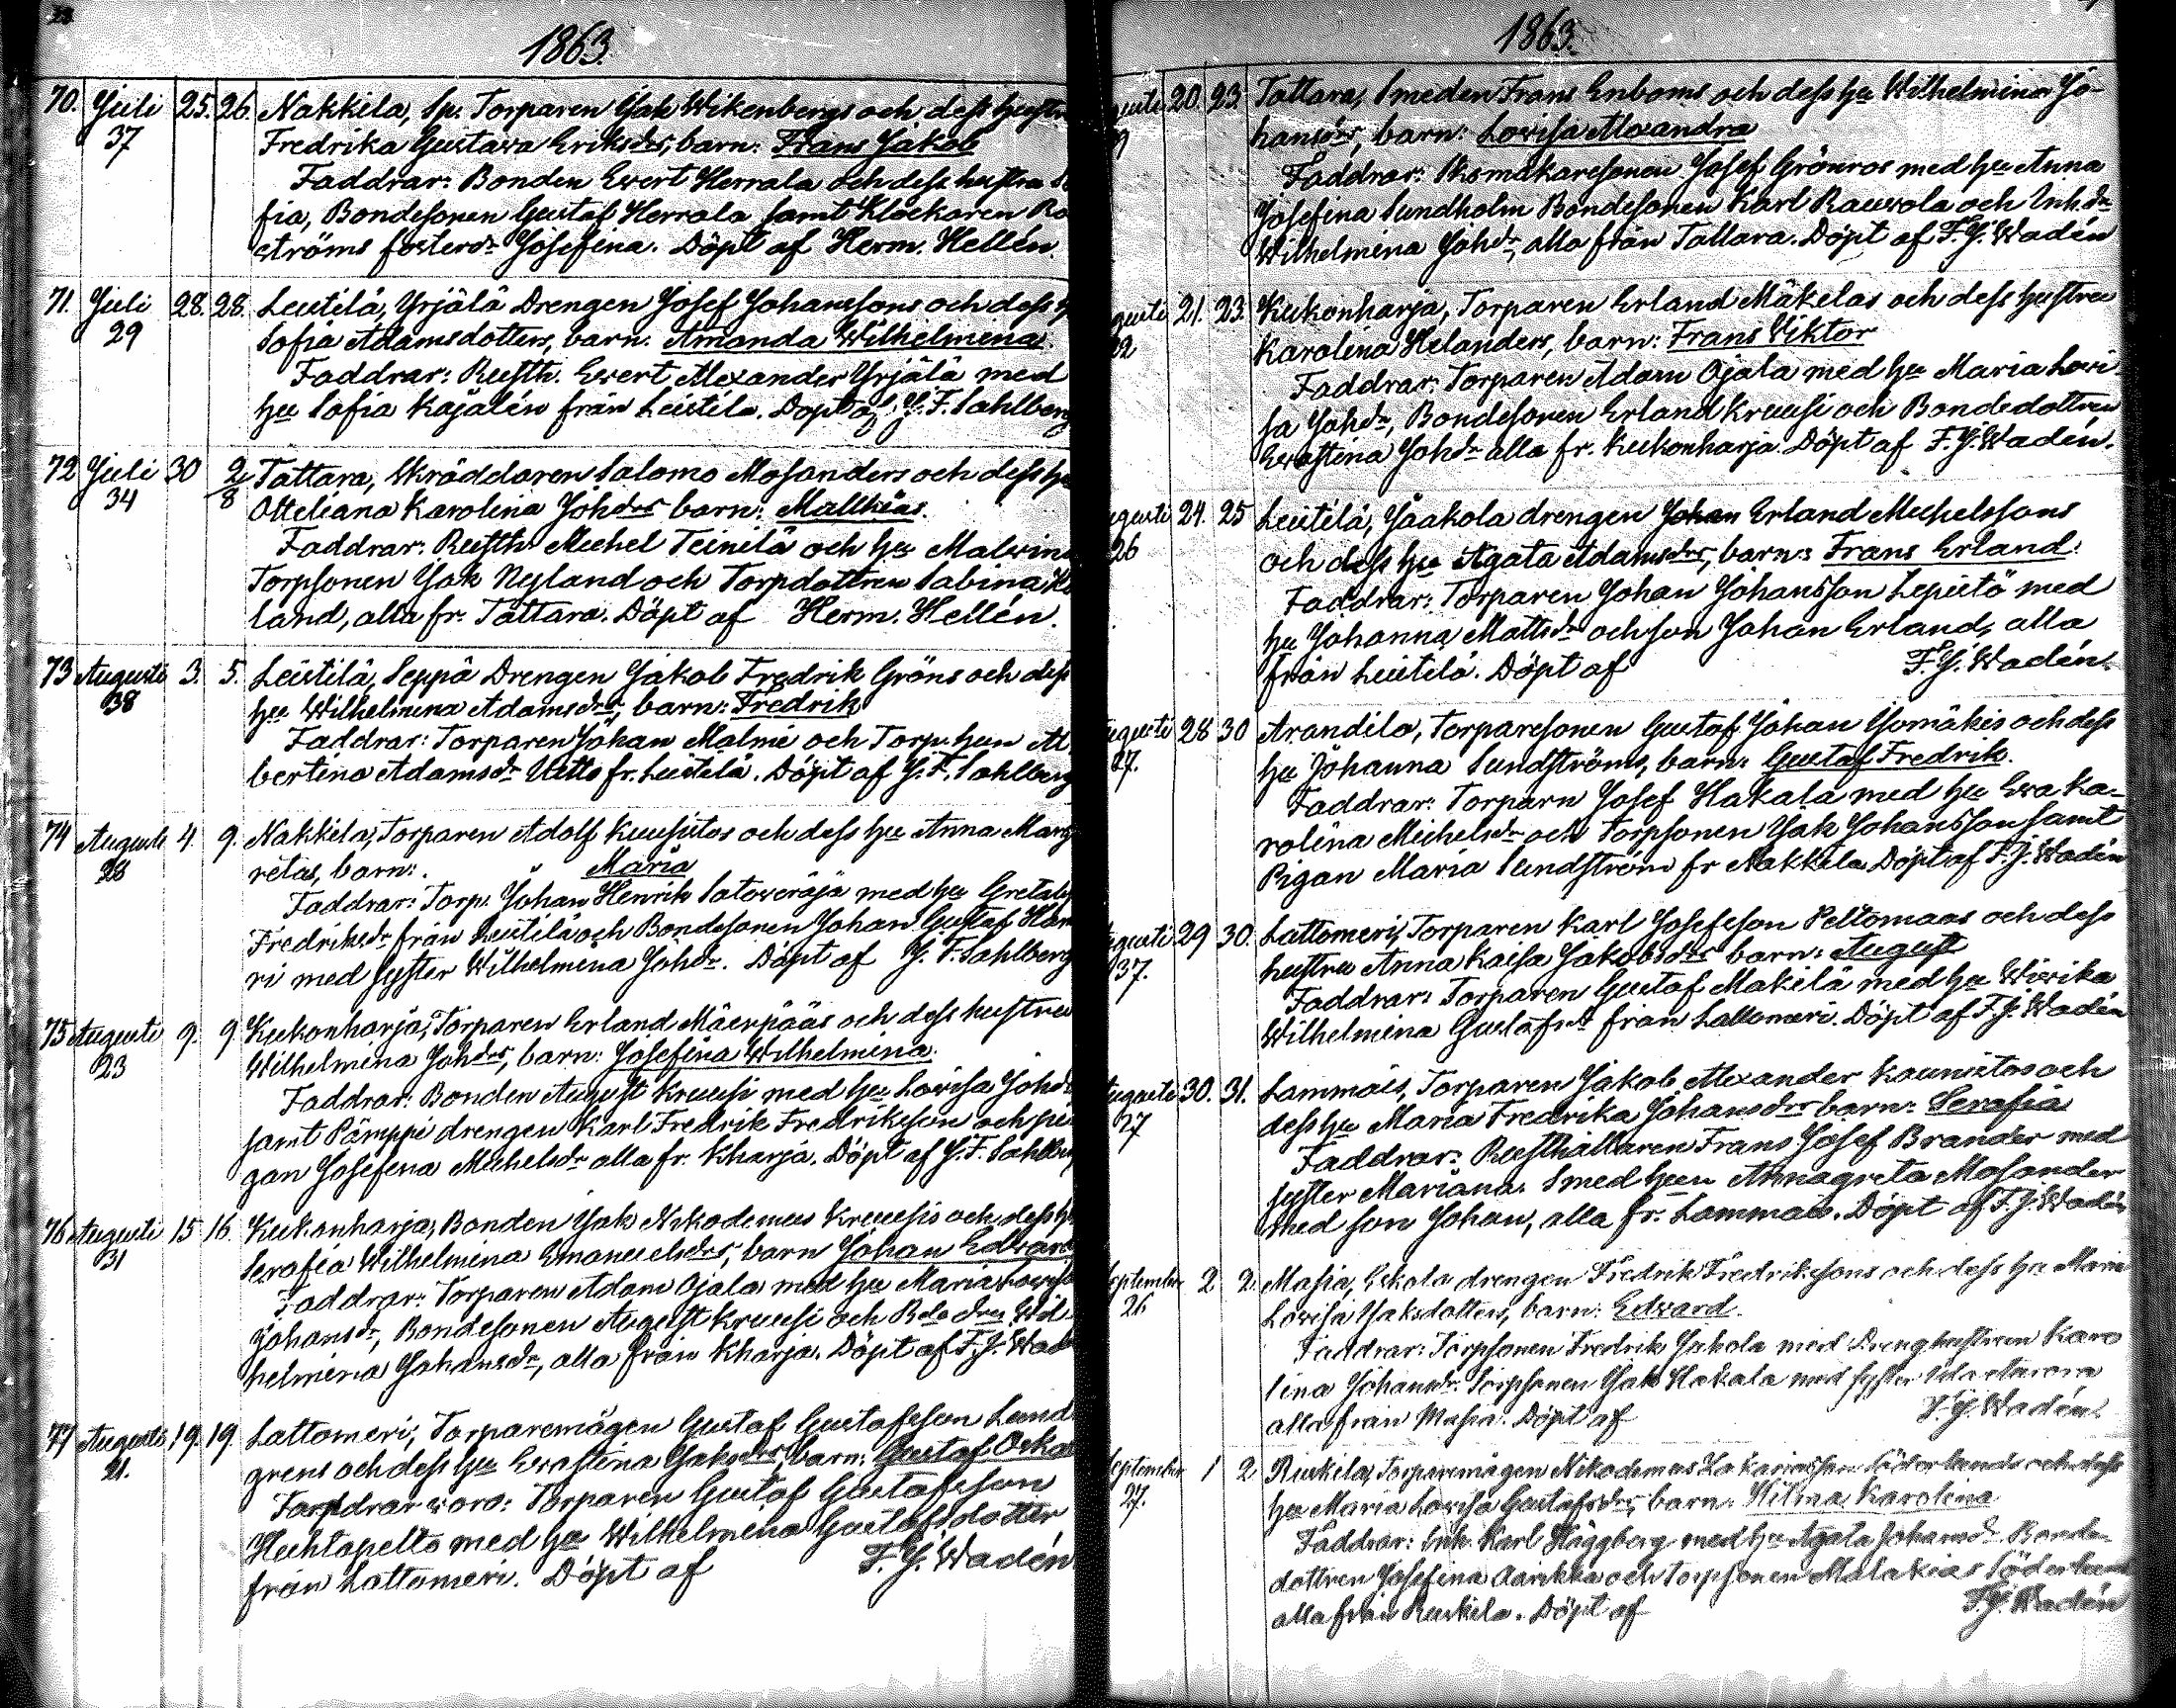 1863.
70. Juli 25. 26. Nakkila, Sp. Torparen Isak Wikenbergs och dess hustru
37 Fredrika Gustava Eriksdrs, barn: Frans Jakob
Faddrar: Bonden Evert Herrala och dess hustru
fia, Bondesonen Gustaf Herrala samt Klockaren
ströms fosterdr Josefina. Döpt af Herm. Hellén.
71. Juli 28. 28. Leistilä, Yrjälä Drengen Josef Johanssons och dess
29 Sofia Adamsdotters, barn: Amanda Wilhelmina
Faddrar: Rusth. Evert Alexander Yrjälä med
hu Sofia Kajalén från Leistilä. Döpt af J. F. Sahlberg
72 Juli 30 2/8 Tattara, Skräddaren Salomo Mosanders och dess hu
34 Otteliana Karolina Johdrs barn: Matthias.
Faddrar: Rusth. Michel Teinilä och hu Malvina
Torpsonen Isak Nyland och Torpdottren Sabina
land, alla fr. Tattara. Döpt af Herm. Hellén.
73 Augusti 3. 5. Leistilä, Seppä Drengen Jakob Fredrik Gröns och dess
38 hu Wilhelmina Adamsdrs, barn: Fredrik
Faddrar: Torparen Johan Malmi och Torp. hun Al
bertina Adamsdr Uitto fr. Leistilä. Döpt af J. F. Sahlberg
74 Augusti 4. 9. Nakkila, Torparen Adolf Kuusistos och dess hu Anna Marga
28 retas, barn: Maria
Faddrar: Torp. Johan Henrik Satoveräjä med hu Greta
Fredriksdr från Leistilä och Bondesonen Johan Gustaf
ri med syster Wilhelmina Johdr. Döpt af J. F. Sahlberg
75 Augusti 9. 9. Kukonharja, Torparen Erland Mäenpääs och dess hustru
23 Wilhelmina Johdrs, barn: Josefina Wilhelmina.
Faddrar: Bonden August Kruusi med hu Lovisa Johdr
samt Pämppi drengen Karl Fredrik Fredriksson och pi
gan Josefina Michelsdr alla fr. Kharja. Döpt af J. F. Sahlberg
76 Augusti 15 16. Kukonharja, Bonden Isak Nikodemus Kruusis och dess hu
31 Serafia Wilhelmina Emanuelsdrs, barn Johan Edvard
Faddrar: Torparen Adam Ojala med hu Maria Lovisa
Johansdr, Bondesonen August Kruusi och Bdedren Wil
helmina Johansdr, alla från Kharja. Döpt af F. J. Wad
77 Augusti 19. 19. Lattomeri, Torparemågen Gustaf Gustafsson Lund
21. grens och dess hu Erastina Isaksdrs, barn: Gustaf Oska
Faddrar voro: Torparen Gustaf Gustafsson
Huhtapelto med hu Wilhelmina Gustafsdotter
från Lattomeri. Döpt af F. J. Wadén
1863.
20. 23. Tattara, Smeden Frans Enboms och dess hu Wilhelmina Jo-
hansdrs, barn: Lovisa Alexandra
Faddrar: Skomakaresonen Josef Grönros med hu Anna
Josefina Sundholm Bondesonen Karl Rauvola och Inh.dr
Wilhelmina Johdr, alla från Tattara. Döpt af F. J. Wadén
gusti 21. 23. Kukonharja, Torparen Erland Mäkeläs och dess hustru
Karolina Helanders, barn: Frans Viktor
Faddrar: Torparen Adam Ojala med hu Maria Lovi
sa Johdr, Bondesonen Erland Kruusi och Bondedottren
Erastina Johdr alla fr. Kukonharja. Döpt af F. J. Wadén.
gusti 24. 25 Leistilä, Jaakola drengen Johan Erland Michelssons
26 och dess hu Agata Adamsdrs, barn: Frans Erland.
Faddrar: Torparen Johan Johansson Lepistö med
hu Johanna Mattsdr och son Johan Erland, alla
från Leistilä. Döpt af F. J. Wadén.
ugusti 28 30 Arandila, Torparesonen Gustaf Johan Isomäkis och dess
27. hu Johanna Sundströms, barn: Gustaf Fredrik.
Faddrar: Torparn Josef Hakala med hu Eva Ka-
rolina Michelsdr och Torpsonen Isak Johansson samt
Pigan Maria Sundström fr Nakkila Döpt af F. J. Wadén
gusti 29 30. Lattomeri, Torparen Karl Josefsson Peltomaas och dess
37. hustru Anna Kaisa Jakobsdrs barn: August
Faddrar: Torparen Gustaf Mäkilä med hu Wivika
Wilhelmina Gustafsdr från Lattomeri. Döpt af F. J. Wadén
ugusti 30. 31. Lammais, Torparen Jakob Alexander Kaunistos och
27 dess hu Maria Fredrika Johansdrs barn: Serafia
Faddrar: Rusthållaren Frans Josef Brander med
syster Mariana. Smed hun Annagreta Mosander
med son Johan, alla fr. Lammais. Döpt af F. J. Wadén
September 2 2. Masia, Eskola drengen Fredrik Fredrikssons och dess hu Maria
26 Lovisa Isaksdotters, barn: Edvard.
Faddrar: Torpsonen Fredrik Jakola med Drenghustrun Karo
lina Johansdr. Torpsonen Isak Hakala med syster Ida Aurora
alla från Masia. Döpt af F. J. Wadén.
September 1 2 Ruskila, Torparemågen Nikodemus Zakariasson Söderlunds och dess
27. hu Maria Lovisa Gustafsdrs, barn: Hilma Karolina
Faddrar: Inh. Karl Häggberg med hu Agata Johansdr. Bonde
dottren Josefina Aarikka och torpsonen Malakias Söderlund
alla från Ruskila. Döpt af F. J. Wadén